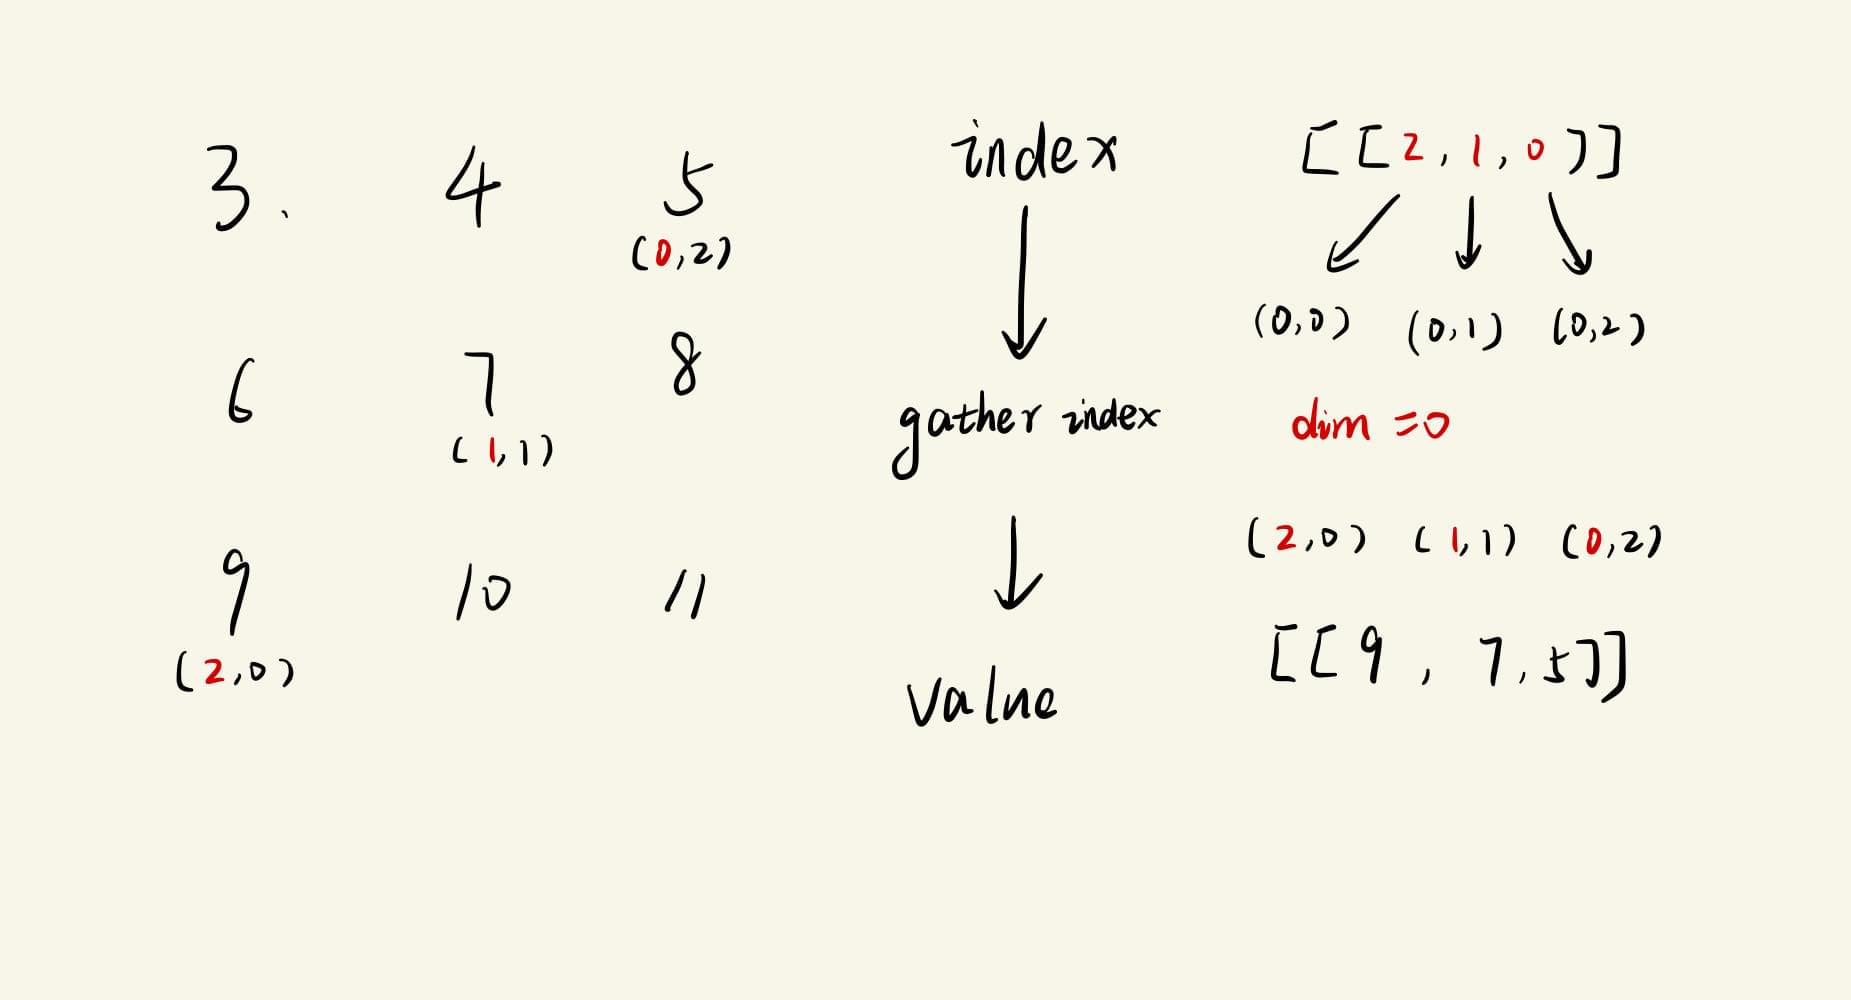 3. 4 5
(0,2)
6 7 8
(1,1)
9 10 11
(2,0)
index
gather index
value
[[2,1,0]]
(0,0) (0,1) (0,2)
dim=0
(2,0) (1,1) (0,2)
[[9,7,5]]